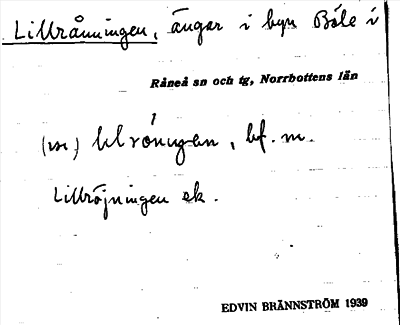 Lillråningen, ängar i byn Böle i
Råneå sn och tg, Norrbottens län
bf. m.
Lillröjningen ek.
EDVIN BRÄNNSTRÖM 1939